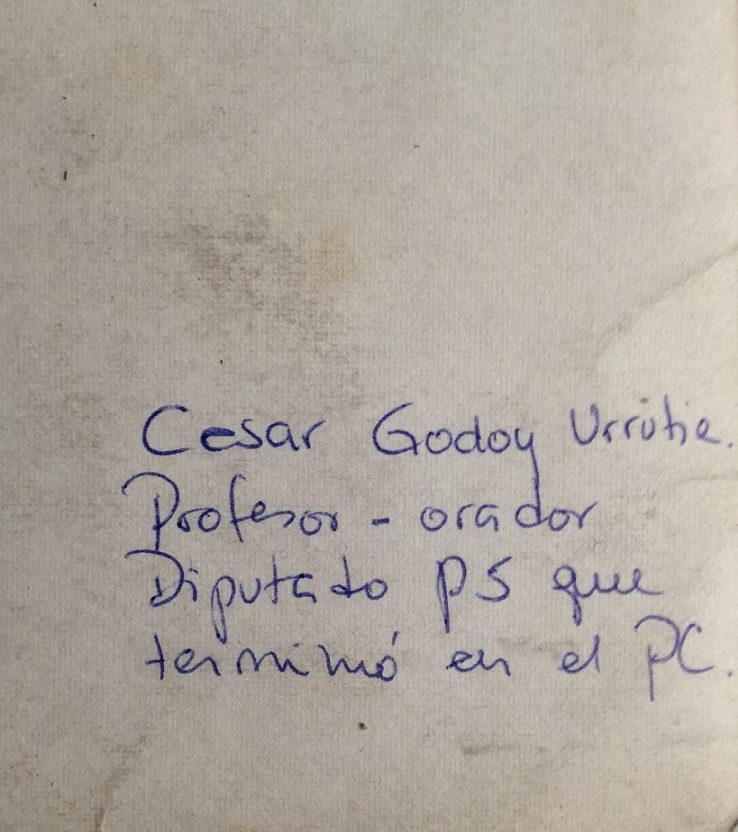 Cesar Godoy Urrutia.
Profesor - orador
Diputado PS que
terminó en el PC.